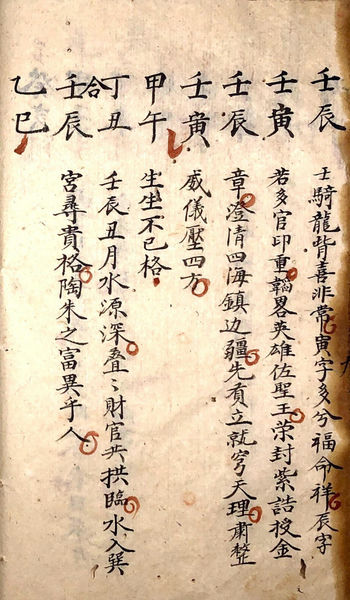 壬辰 壬騎龍背喜非常寅字多兮福命祥辰字
壬寅 若多官印重韜畧英雄佐聖王荣封紫誥授金
壬辰 章澄清四海鎮边疆先有立就穹天理肅整
壬寅 威儀壓四方
甲午 生生不已格
丁丑 壬辰丑月水源深叠〻財官共拱臨水入巽
合
壬辰 宮尋貴格陶朱之富異乎人
乙巳